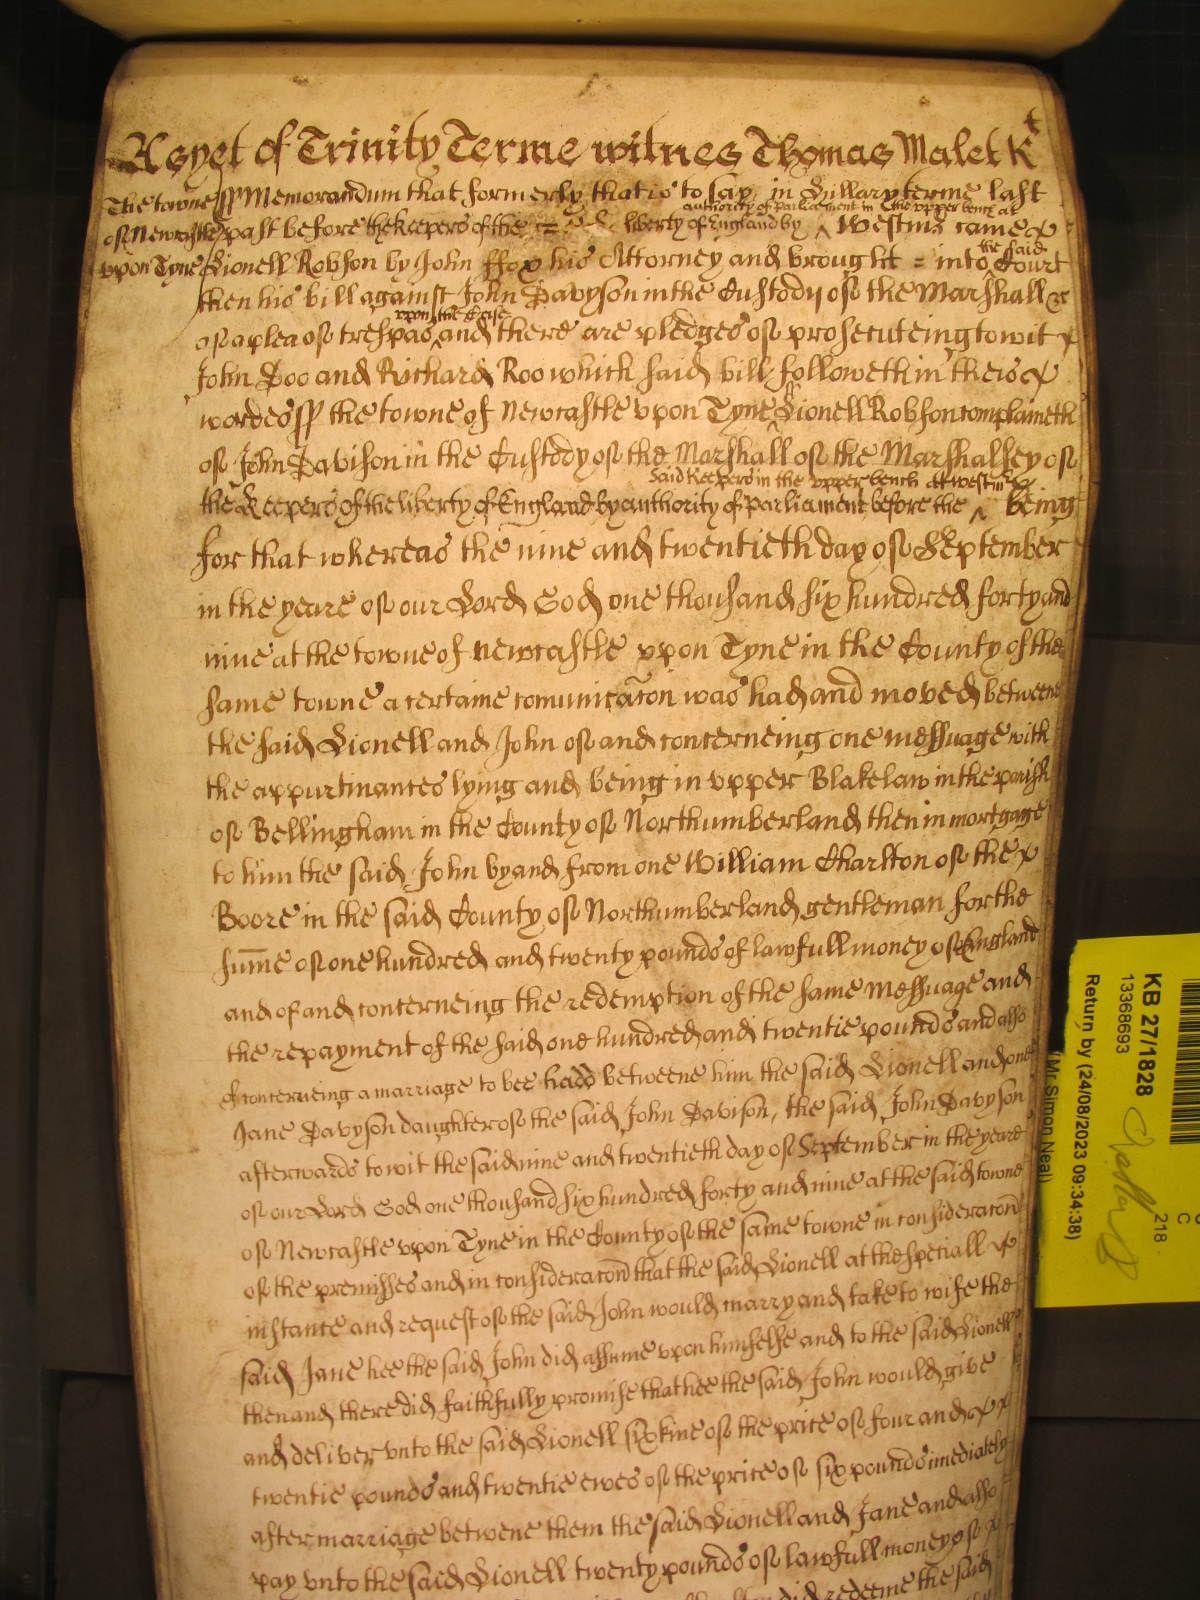 As yet of Trinity Terme witnes Thomas Malet Kt
The towne ss Memorandum that formerly that is to say in Hillary terme last
authority of parliament in the upper bench at
of Newcastle past before the Keepers of the liberty of England by ^ Westmr came
the said
upon Tyne Lionell Robson by John ffox his Attorney and brought = into ^ Court
then his bill against John Davyson in the Custody of the Marshall &c
upon the Case
of a plea of trespas ^ and there are pledges of prosecuteing to wit
John Doo and Richard Roo which said bill followeth in theis
wordes ss the towne of Newcastle vpon Tyne ss Lionell Robson complaineth
of John Davison in the Custody of the Marshall of the Marshalsey of
said Keepers in the vpper bench at Westmr
the Keepers of the liberty of England by authority of Parliament before the ^ being
for that whereas the nine and twentieth day of September
in the yeare of our Lord God one thousand six hundred forty and
nine at the towne of Newcastle vpon Tyne in the County of the
same towne a certaine comunicacon was had and moved betweene
the said Lionell and John of and concerneing one messuage with
the appurtinances lying and being in vpper Blakelaw in the parish
of Bellingham in the County of Northumberland then in mortgage
to him the said John by and from one William Charlton of the
Boore in the said County of Northumberland gentleman for the
summe of one hundred and twenty pounds of lawfull money of England
and of and concerneing the redemption of the same messuage and
the repayment of the said one hundred and twentie pounds and also
of concerneing a marriage to bee hadd betweene him the said Lionell and one
Jane Davyson daughter of the said John Davison, the said John Davyson
afterwards to wit the said nine and twentieth day of September in the yeare
of our Lord God one thousand six hundred forty and nine at the said towne
of Newcastle vpon Tyne in the County of the same towne in consideracon
of the premisses and in consideracon that the said Lionell at the speciall
instance and request of the said John would marry and take to wife the
said Jane hee the said John did assume vpon himselfe and to the said Lionell
then and there did faithfully promise that hee the said John would give
and deliver vnto the said Lionell six kine of the price of four and
twentie pounds and twentie ewes of the price of six pounds imediately
after marriage betwene them the said Lionell and Jane and also
pay vnto the said Lionell twenty pounds of lawfull money of
did redeeme the said
KB 27/1828
13368693
Return by (24/08/2023 09:34:38)
Mr Simon Neal
218
C